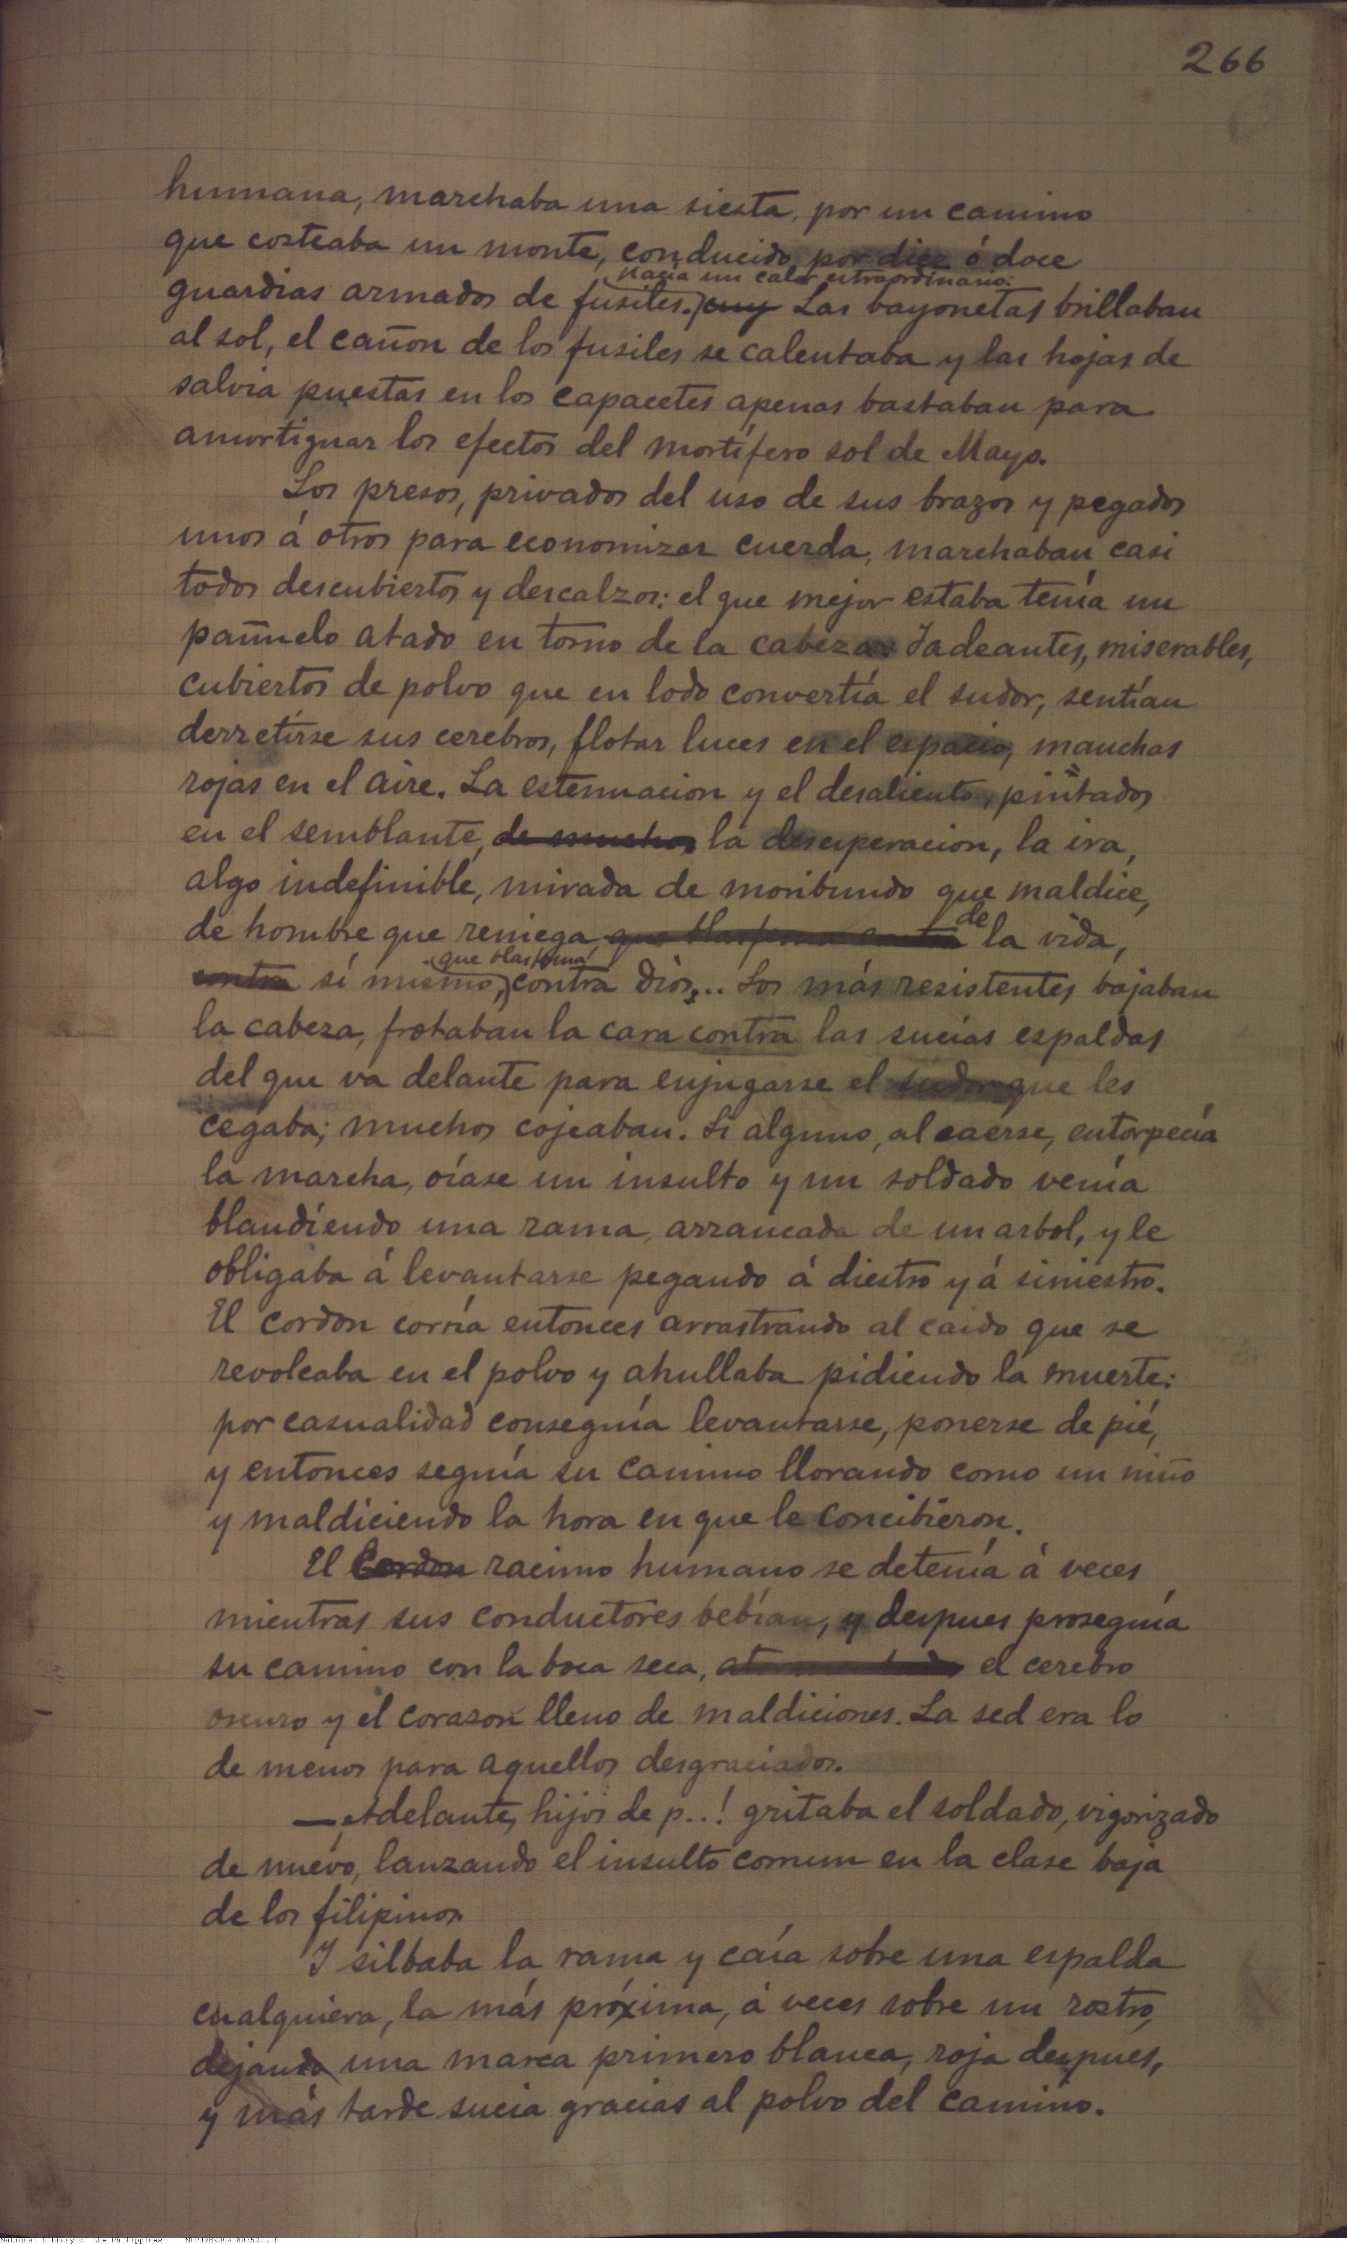 266
humana, marchaba una siesta, por un camino
que costeaba un monte, conducido por diez ó doce
hacía un calor estraordinario:
guardias armados de fusiles. cuy Las bayonetas brillaban
al sol, el cañon de los fusiles se calentaba y las hojas de
salvia puestas en los capacetes apenas bastaban para
amortiguar los efectos del mortífero sol de Mayo.
Los presos, privados del uso de sus brazos y pegados
unos á otros para economizar cuerda, marchaban casi
todos descubiertos y descalzos: el que mejor estaba tenía un
pañuelo atado en torno de la cabeza. Jadeantes, miserables,
cubiertos de polvo que en lodo convertía el sudor, sentían
derretirse sus cerebros, flotar luces en el espacio, manchas
rojas en el aire. La estenuacion y el desaliento, pintados
en el semblante, de muchos la desesperacion, la ira,
algo indefinible, mirada de moribundo que maldice,
de hombre que reniega que blasfema contra de la vida,
que blasfema
contra sí mismo, contra Dios... Los más resistentes bajaban
la cabeza, frotaban la cara contra las sucias espaldas
del que va delante para enjugarse el sudor que les
cegaba; muchos cojeaban. Si alguno, al caerse, entorpecía
la marcha, oíase un insulto y un soldado venía
blandiendo una rama, arrancada de un arbol, y le
obligaba á levantarse pegando á diestro y á siniestro.
El cordon corría entonces arrastrando al caido que se
revolcaba en el polvo y ahullaba pidiendo la muerte:
por casualidad conseguía levantarse, ponerse de pié,
y entonces seguía su camino llorando como un niño
y maldiciendo la hora en que le concibieron.
El Cordon racimo humano se detenía á veces
mientras sus conductores bebían, y despues proseguía
su camino con la boca seca, el cerebro
oscuro y el corazon lleno de maldiciones. La sed era lo
de menos para aquellos desgraciados.
—Adelante, hijos de p..! gritaba el soldado, vigorizado
de nuevo, lanzando el insulto comun en la clase baja
de los filipinos
Y silbaba la rama y caía sobre una espalda
cualquiera, la más próxima, á veces sobre un rostro,
dejando una marca primero blanca, roja despues,
y más tarde sucia gracias al polvo del camino.